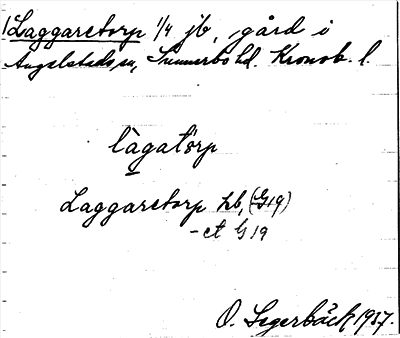 1) Laggaretorp 1/4 jb, gård i
Angelstads sn, Sunnerbo hd. Kronob. l.
làgatårp
Laggaretorp hb, (G19)
-et G 19
O. Segerbäck 1937.